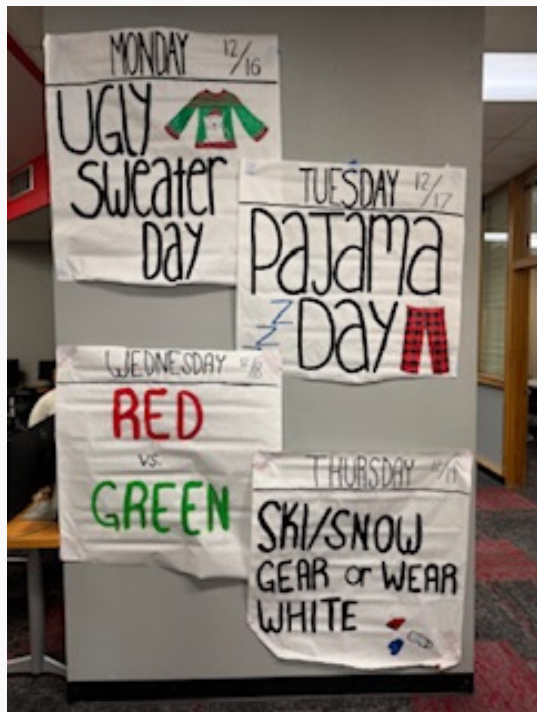 MONDAY 12/16
UGLY
Sweater
DAY
TUESDAY 12/17
PaJama
DAY
WEDNESDAY 12/18
RED
vs.
GREEN
THURSDAY 12/19
SKI/SNOW
GEAR or WEAR
WHITE